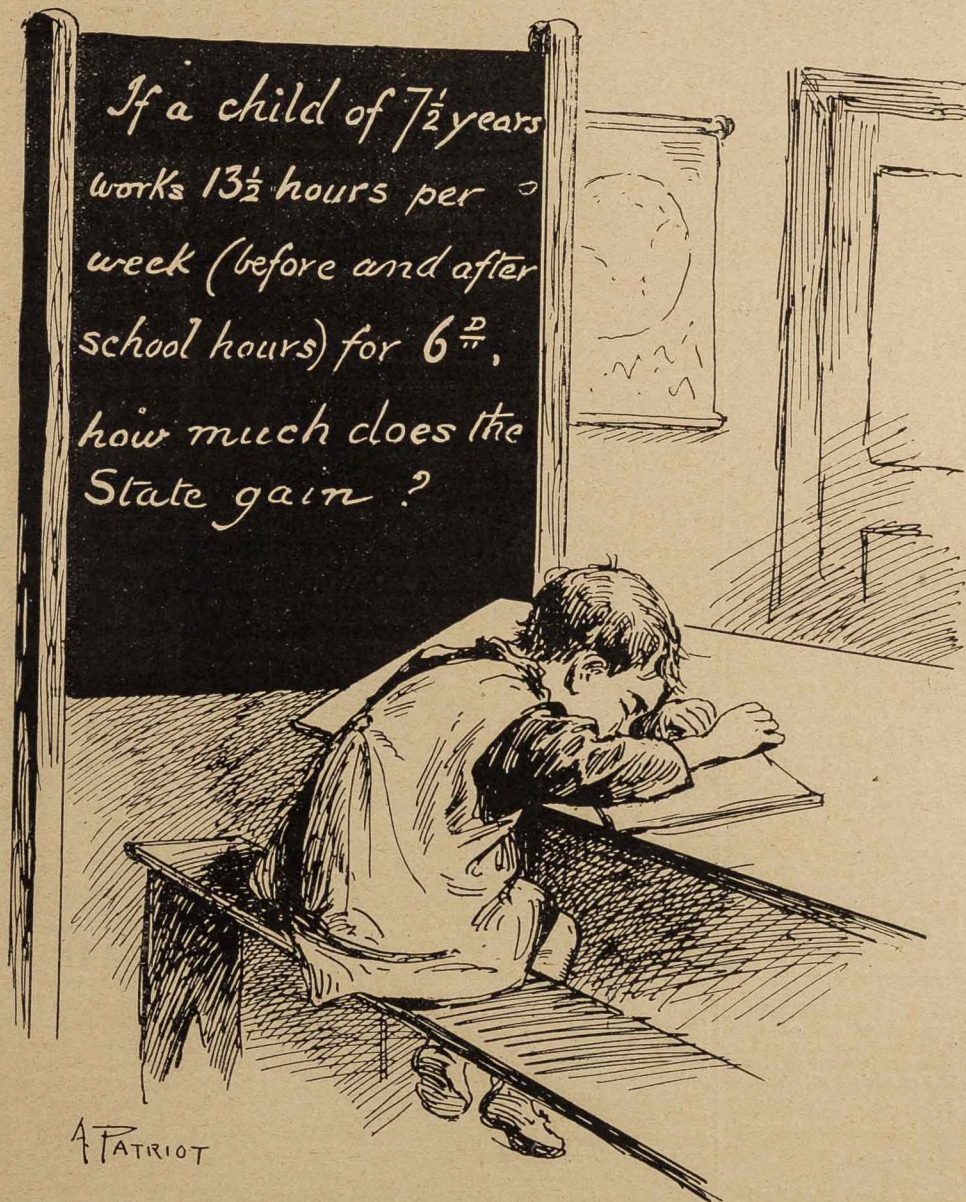 If a child of 7½ years
works 13½ hours per
week (before and after
school hours) for 6ᴰ,
how much does the
State gain ?
A PATRIOT